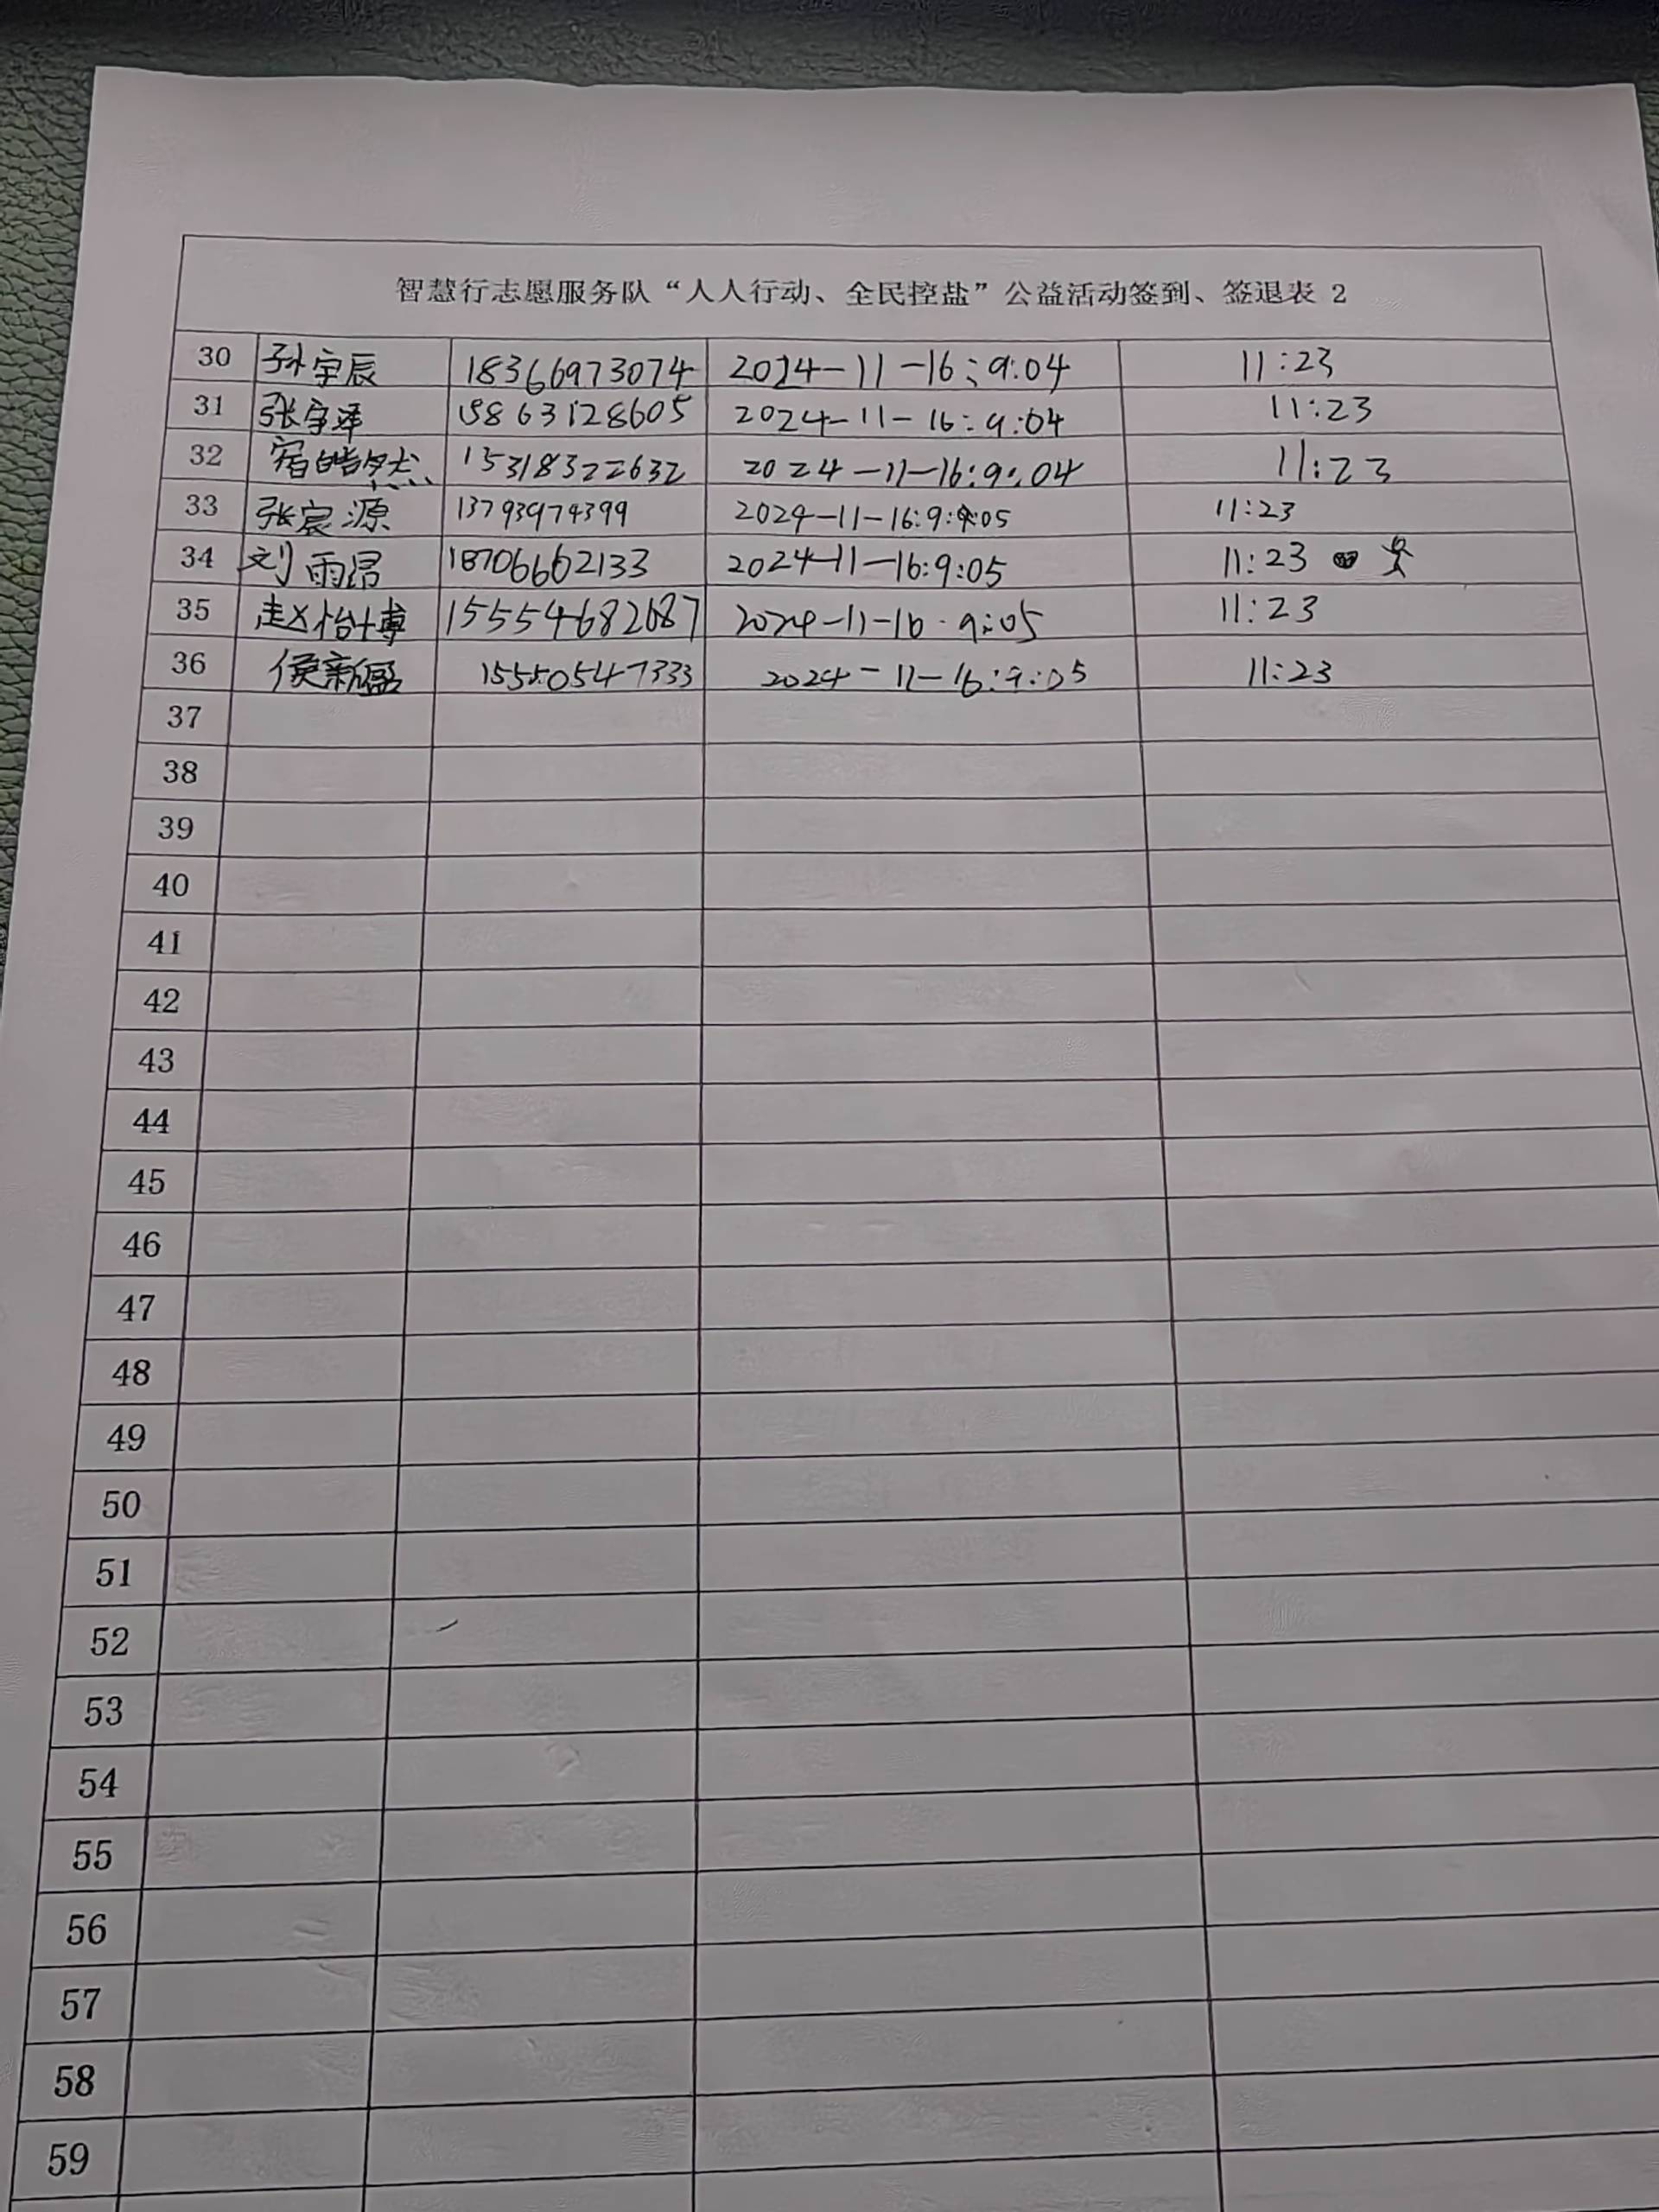 智慧行志愿服务队“人人行动、全民控盐”公益活动签到、签退表 2
30 孙宇辰 18366973074 2024-11-16:9:04 11:23
31 张宇泽 15863128605 2024-11-16:9:04 11:23
32 宿皓然 15318322632 2024-11-16:9:04 11:23
33 张宸源 13793974399 2024-11-16:9:05 11:23
34 刘雨昂 18706662133 2024-11-16:9:05 11:23
35 赵怡博 15554682687 2024-11-16·9:05 11:23
36 侯新盈 15550547333 2024-11-16:9:05 11:23
37
38
39
40
41
42
43
44
45
46
47
48
49
50
51
52
53
54
55
56
57
58
59